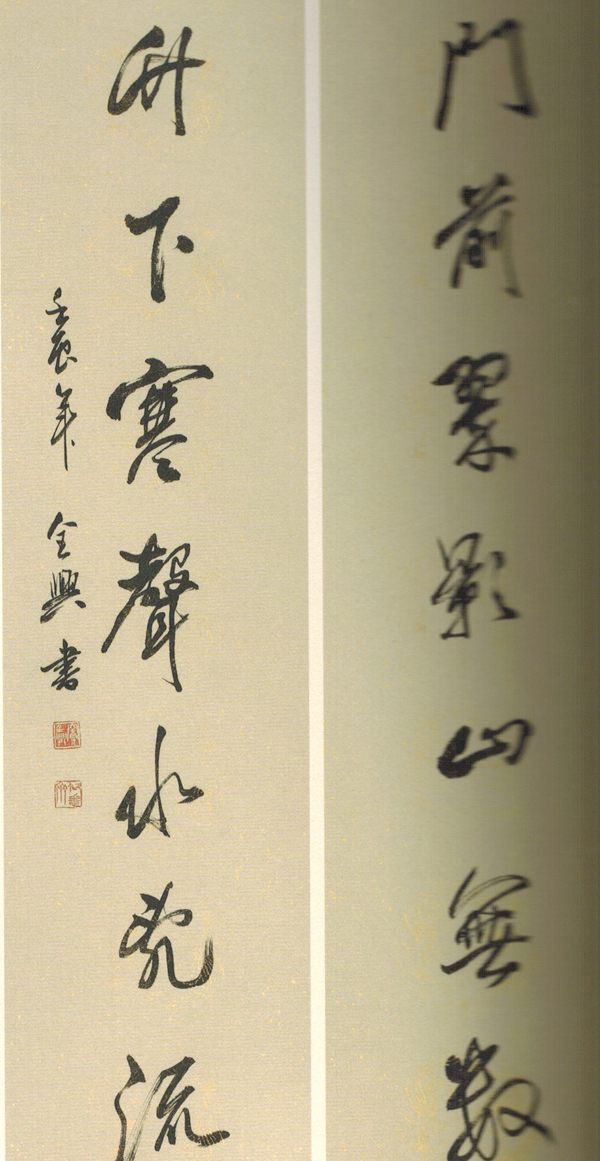 門前翠影山無數
竹下寒聲水亂流
壬辰年 全興書